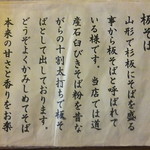 板そば
山形で杉板にそばを盛る
事から板そばと呼ばれて
いる様です。当店では道
産石臼びきそば粉を昔な
がらの十割太打ちで板そ
ばとして出しております。
どうぞよくかみしめてそば
本来の甘さと香りをお楽